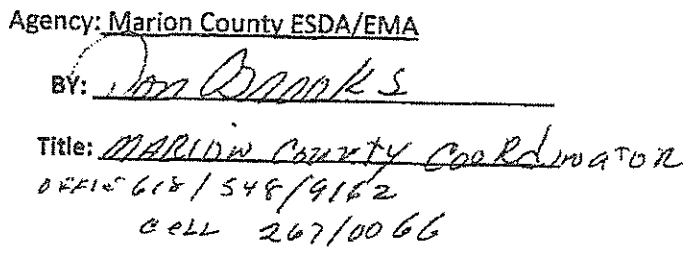 Agency: Marion County ESDA/EMA
BY: Don Brooks
Title: MARION COUNTY COORDINATOR
OFFIE 618/548/9162
CELL 267/0066